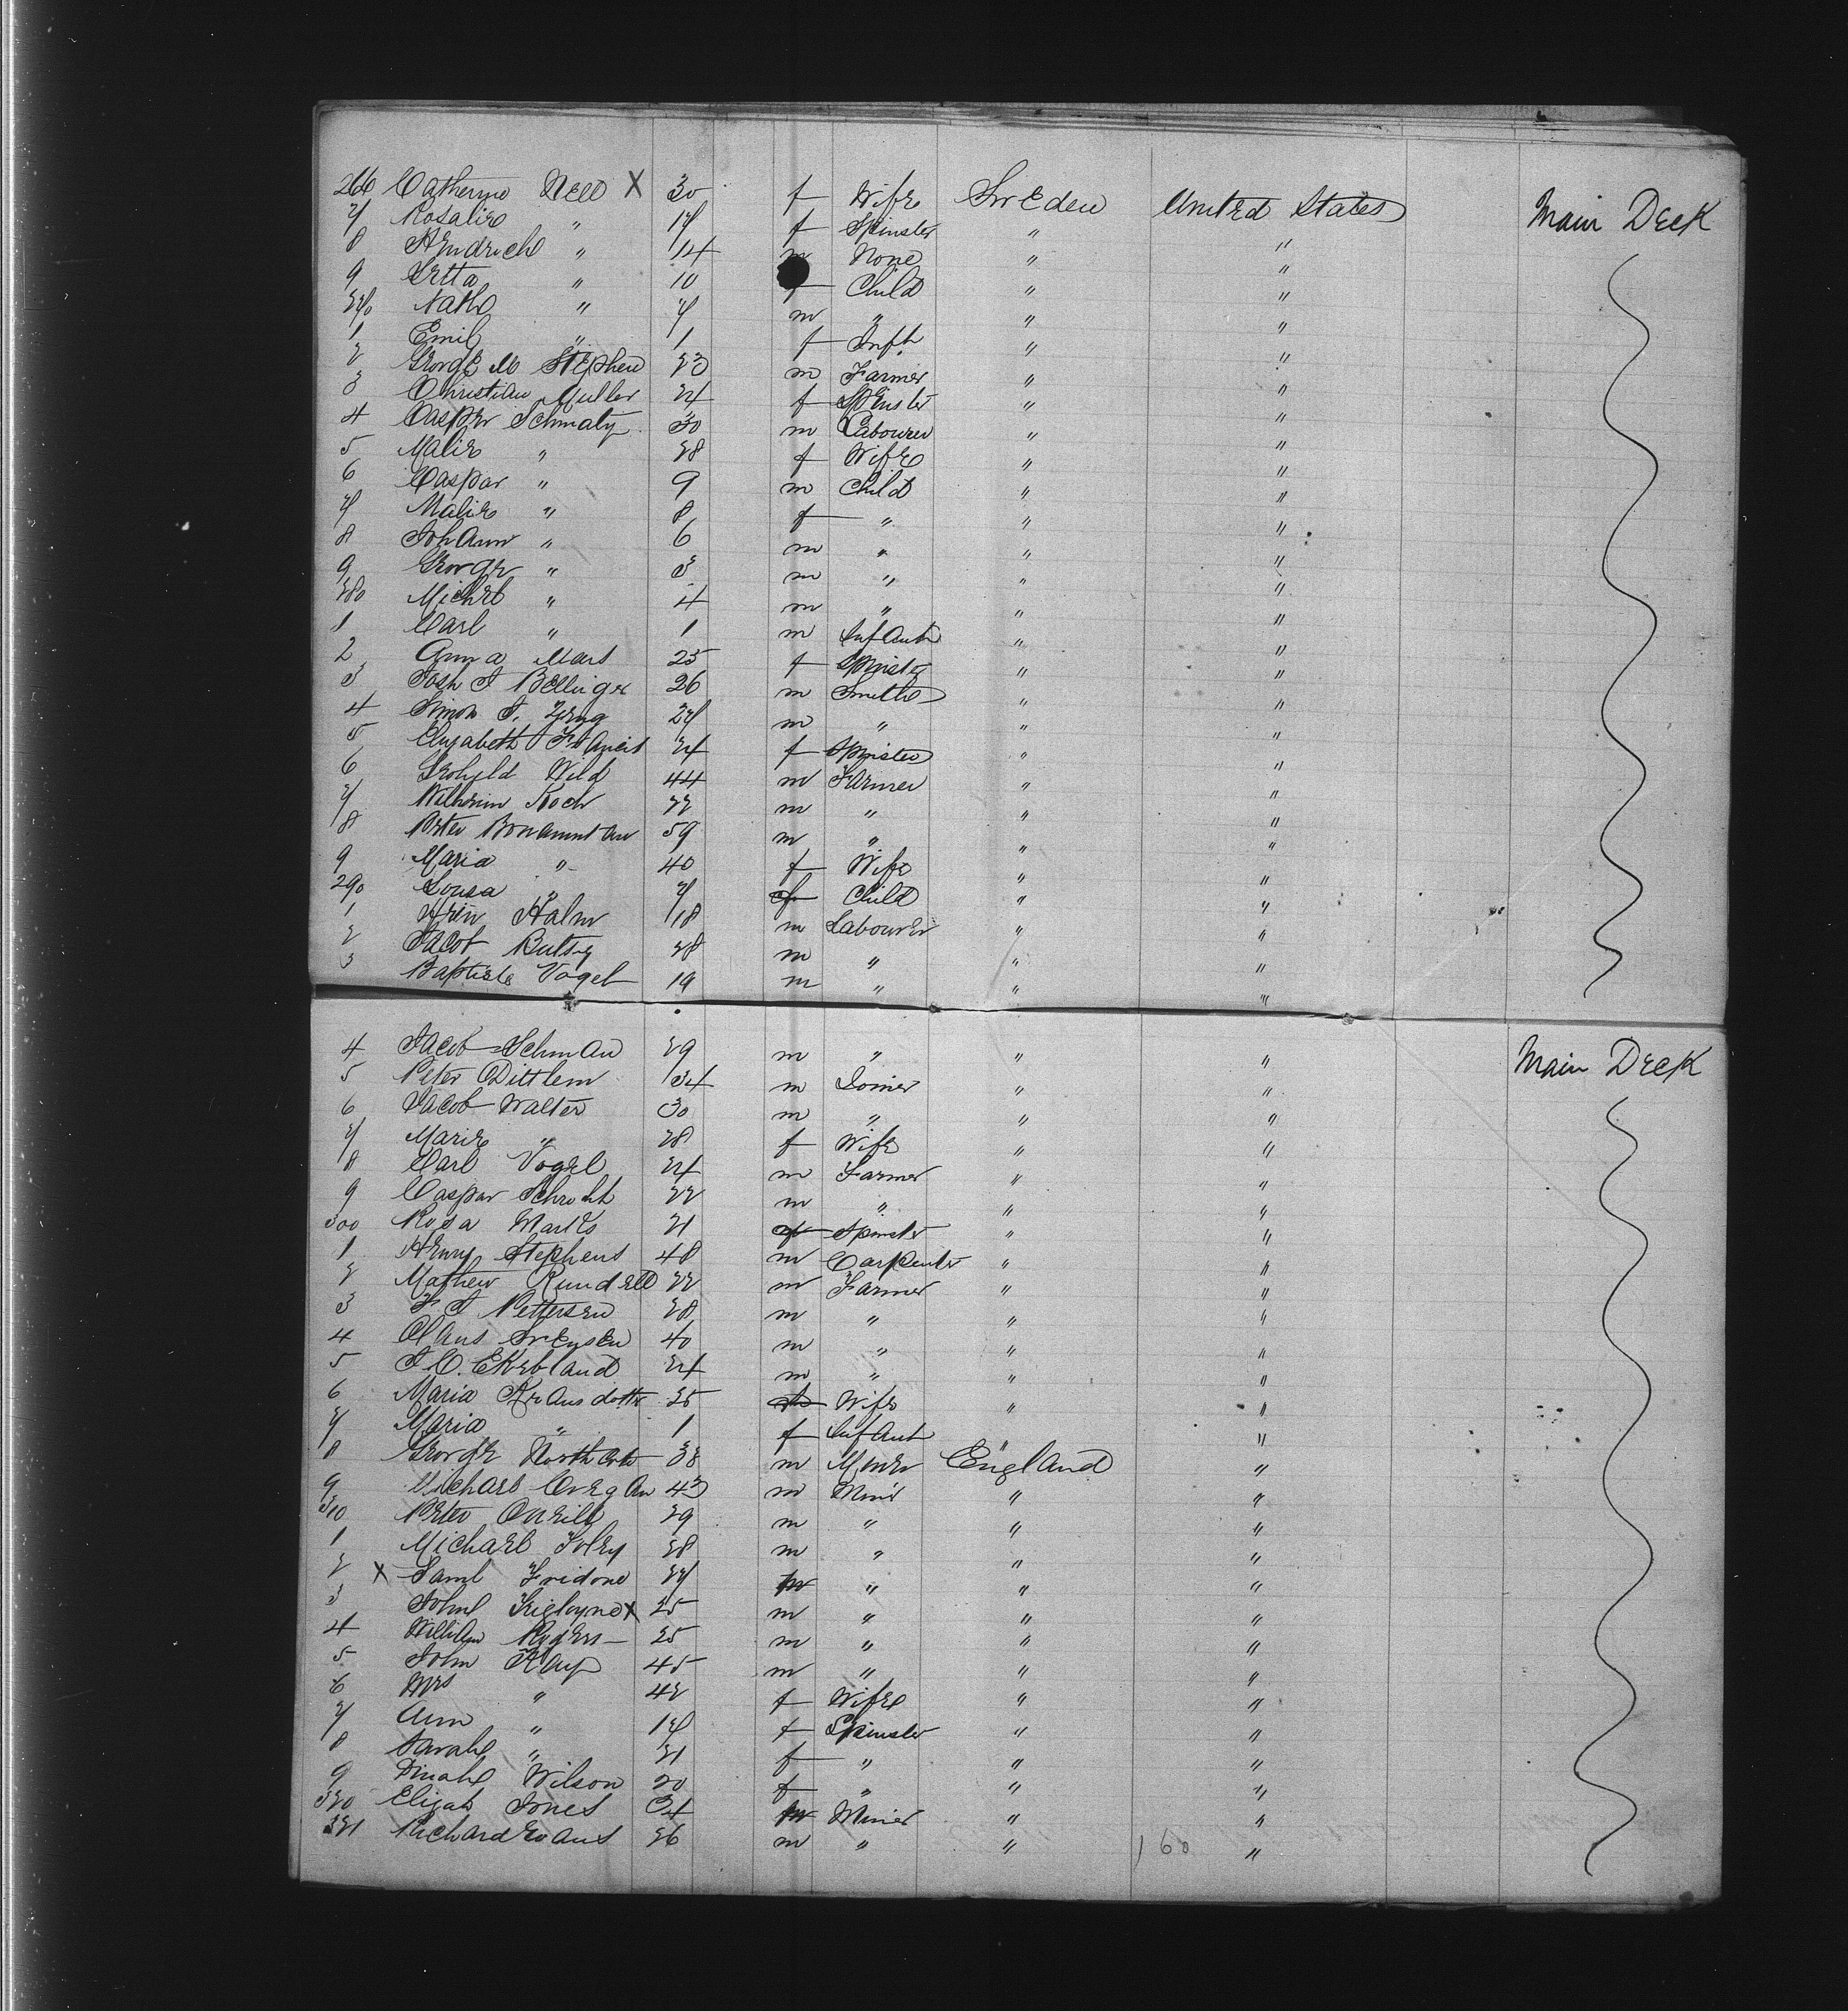 266 Catherine Neel X 30 f Wife Sweden United States Main Deck
7 Rosalie " 17 f Spinster " "
8 Hendrich " 14 m None " "
9 Setta " 10 f Child " "
270 " 7 m " " "
1 Emil " 1 f Inft " "
2 George M Stephen 23 m Farmer " "
3 Christian Muller 24 f Spinster " "
4 Casper Schmaltz 30 m Labourer " "
5 Malie " 28 f Wife " "
6 Caspar " 9 m Child " "
7 Malie " 8 f " " "
8 Johann " 6 m " " "
9 George " 3 m " " "
280 Michel " 4 m " " "
1 Carl " 1 m Infant " "
2 Anna Mars 25 f Spinster " "
3 Josh J Bellinger 26 m Smith " "
4 Simon J. 27 m " " "
5 Elizabeth Francis 24 f Spinster " "
6 Wild 44 m Farmer " "
7 Wilheim Koch 22 m " " "
8 Peter 59 m " " "
9 Maria " 40 f Wife " "
290 Lousa " 7 f Child " "
1 Halm 18 m Labourer " "
2 Jacob 28 m " " "
3 Baptiste Vogel 19 m " " "
4 Jacob Schmau 29 m " " " Main Deck
5 Peter Dittlem 34 m Joiner " "
6 Jacob Walter 30 m " " "
7 Marie " 28 f Wife " "
8 Carl Vogel 24 m Farmer " "
9 Caspar 22 m " " "
300 Rosa Marks 21 f Spinster " "
1 Henry Stephens 48 m Carpenter " "
2 Mathew Rundell 22 m Farmer " "
3 F J Pettersen 28 m " " "
4 Claus Swensen 40 m " " "
5 J C. Ekebland 24 m " " "
6 Maria 25 Wife " "
7 Maria " 1 f Infant " "
8 George 38 m Miner England "
9 Michael 43 m Miner " "
310 Peter Oneill 29 m " " "
1 Michael Foley 28 m " " "
2 X Saml Fridone 27 m " " "
3 John X 25 m " " "
4 William Rogers 25 m " " "
5 John Kay 45 m " " "
6 Mrs " 42 f Wife " "
7 Ann " 17 f Spinster " "
8 Sarah " 21 f " " "
9 Dinah Wilson 20 f " " "
320 Elijah Jones 34 m Miner " "
321 Richard Evans 26 m " " 160 "